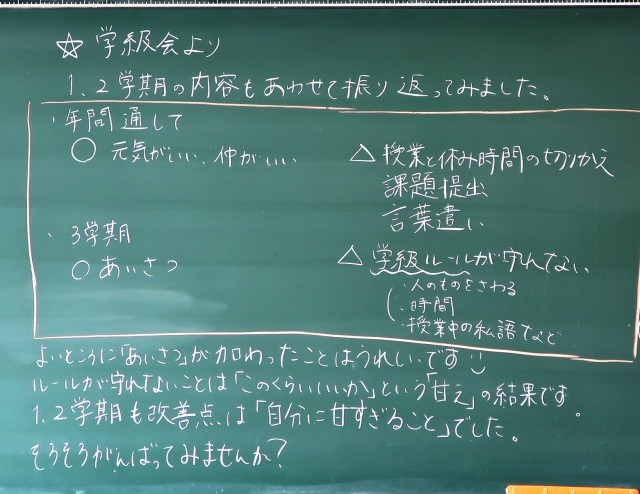 ☆ 学級会より
1、2学期の内容もあわせて振り返ってみました。
・年間通して
○ 元気がいい、仲がいい
△ 授業と休み時間の切りかえ
課題提出
言葉遣い
・3学期
○ あいさつ
△ 学級ルールが守れてない
・人のものをさわる
・時間
・授業中の私語など
よいところに「あいさつ」が加わったことはうれしいです
ルールが守れないことは「このくらいいいか」という「甘え」の結果です。
1、2学期も改善点は「自分に甘すぎること」でした。
そろそろがんばってみませんか?